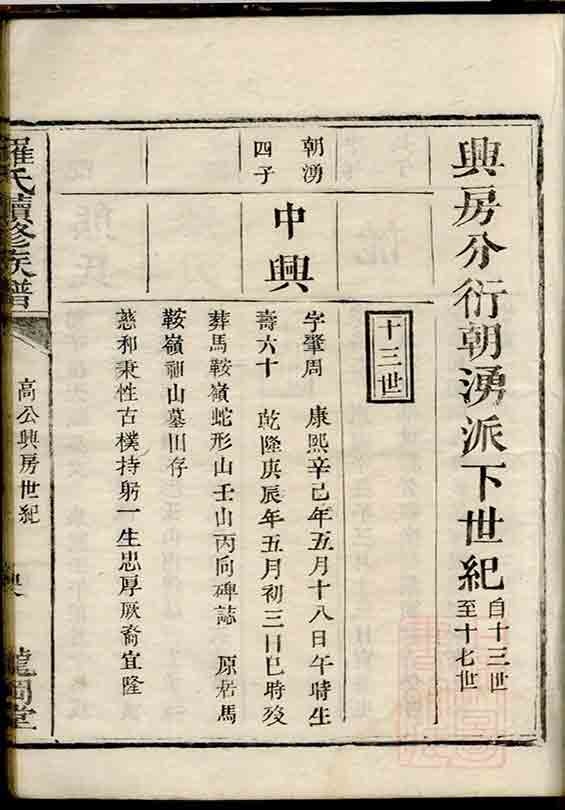 興房分衍朝湧派下世紀自十三世至十七世
十三世
朝湧
四子
中興
字肇周 康熙辛巳年五月十八日午時生
壽六十 乾隆庚辰年五月初三日巳時歿
葬馬鞍嶺蛇形山壬山丙向碑誌 原居馬
鞍嶺御山墓田存
慈和秉性古樸持躬一生忠厚厥裔宜隆
羅氏續修族譜
高公興房世紀
龍岡堂